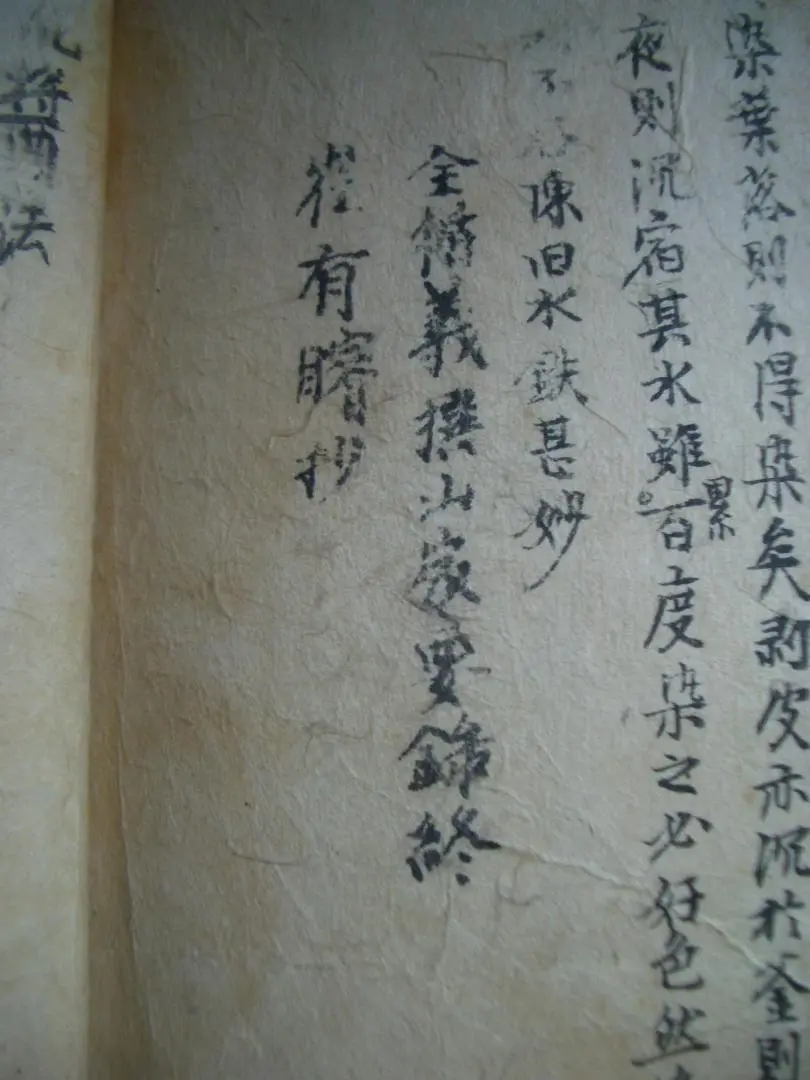 染葉落則不得染矣剥皮亦沉於釜則
夜則沉宿其水雖百累度染之必好色然
不 陳旧水鉄甚妙
全循義撰山家要錄終
崔有𤀹抄
醬法